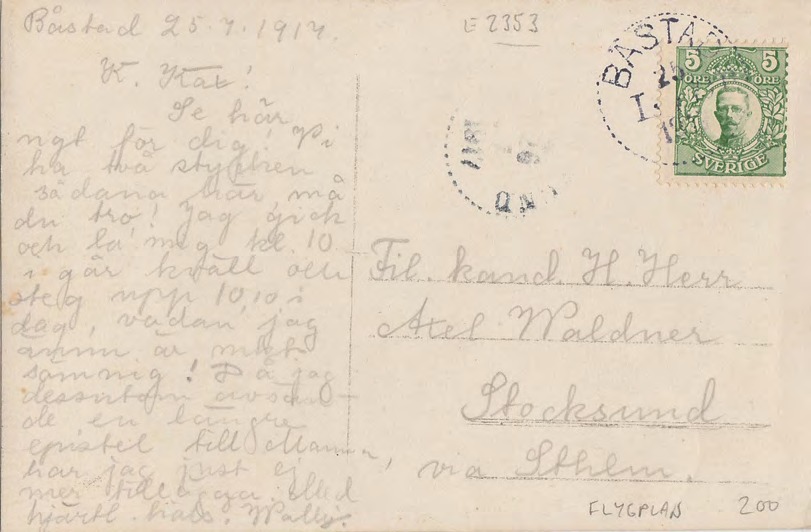 Båstad 25.7.1917.
K. Kax!
Se här
ngt för dig! Vi
ha två stycken
sådana här, må
du tro! Jag gick
och la' mig kl. 10
i går kväll och
steg upp 10,10 i
dag, vadan jag
ännu är mkt
sömnig! Då jag
dessutom avsän-
de en längre
epistel till Mamma,
har jag just ej
mer tillägga. Med
hjärtl. häls. Wally.
E 2353
BÅSTAD
25
5 5
ÖRE ÖRE
SVERIGE
1917
Fil. kand. H. Herr
Axel Waldner
Stocksund
via Sthlm.
FLYGPLAN 200